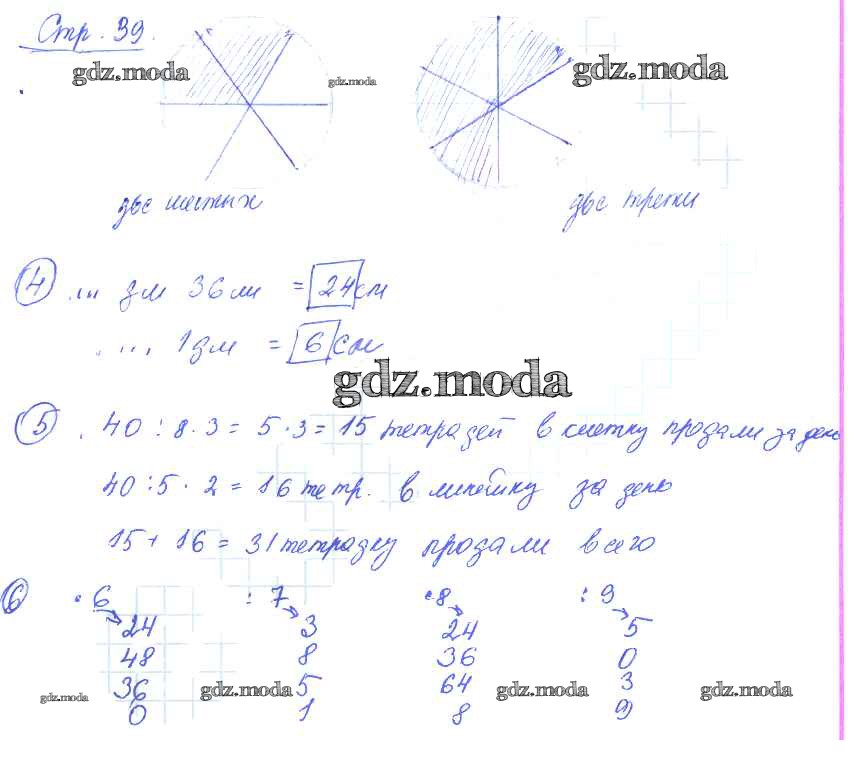 Стр. 39.
gdz.moda
gdz.moda
gdz.moda
две шестых
две третьи
④ ... дм 36 мм = 24 см
... 1 дм = 6 см
gdz.moda
⑤ 40 : 8 · 3 = 5 · 3 = 15 тетрадей в клетку продали за день
40 : 5 · 2 = 16 тетр. в линейку за день
15 + 16 = 31 тетрадку продали всего
⑥ · 6 : 7 · 8 : 9
24 3 24 5
48 8 36 0
36 5 64 3
0 1 8 9
gdz.moda gdz.moda gdz.moda gdz.moda